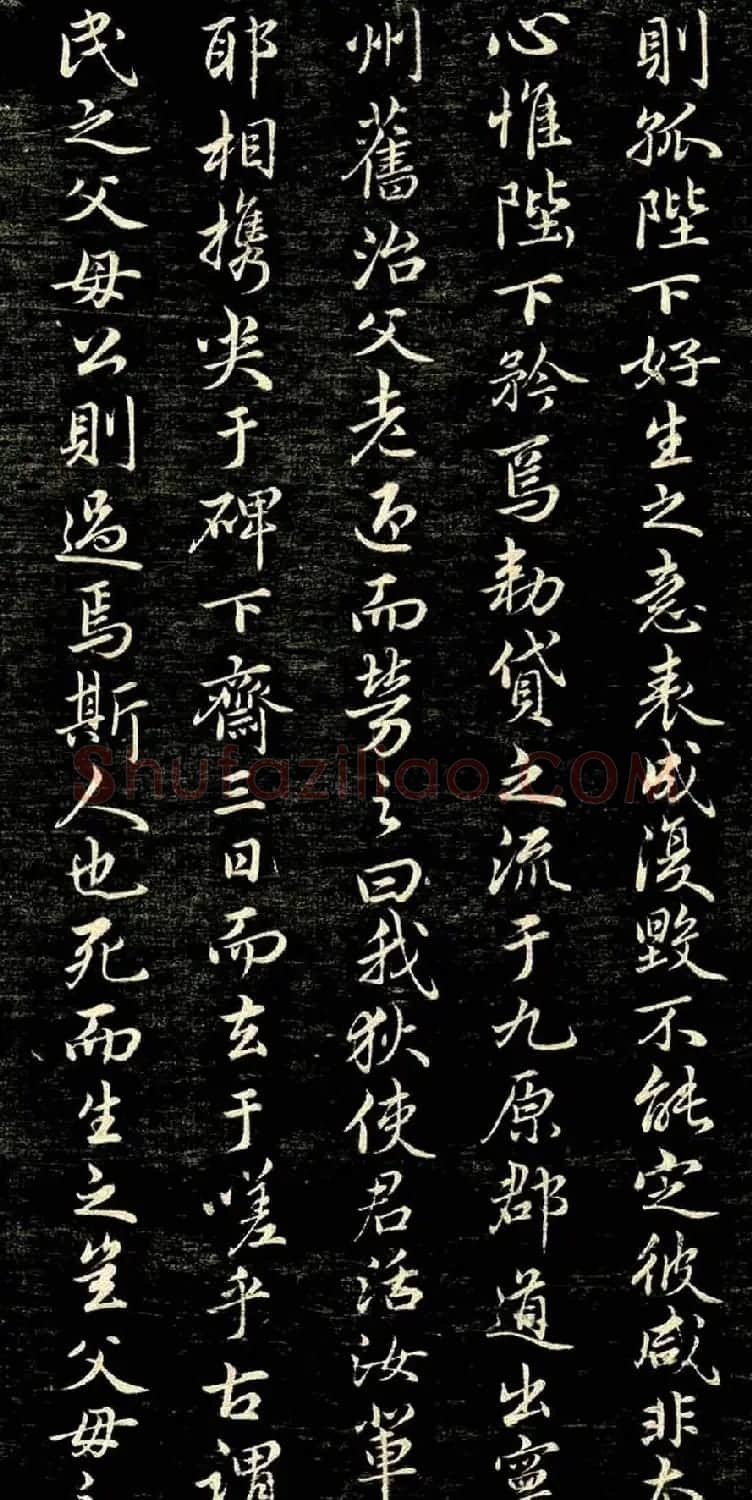 則孤陛下好生之意表成復毀不能定彼咸非本
心惟陛下矜焉勅貸之流于九原郡道出寧
州舊治父老迎而勞之曰我狄使君活汝輩
耶相携哭于碑下齋三日而去于嗟乎古謂
民之父母公則過焉斯人也死而生之豈父母之
Shufaziliao.COM